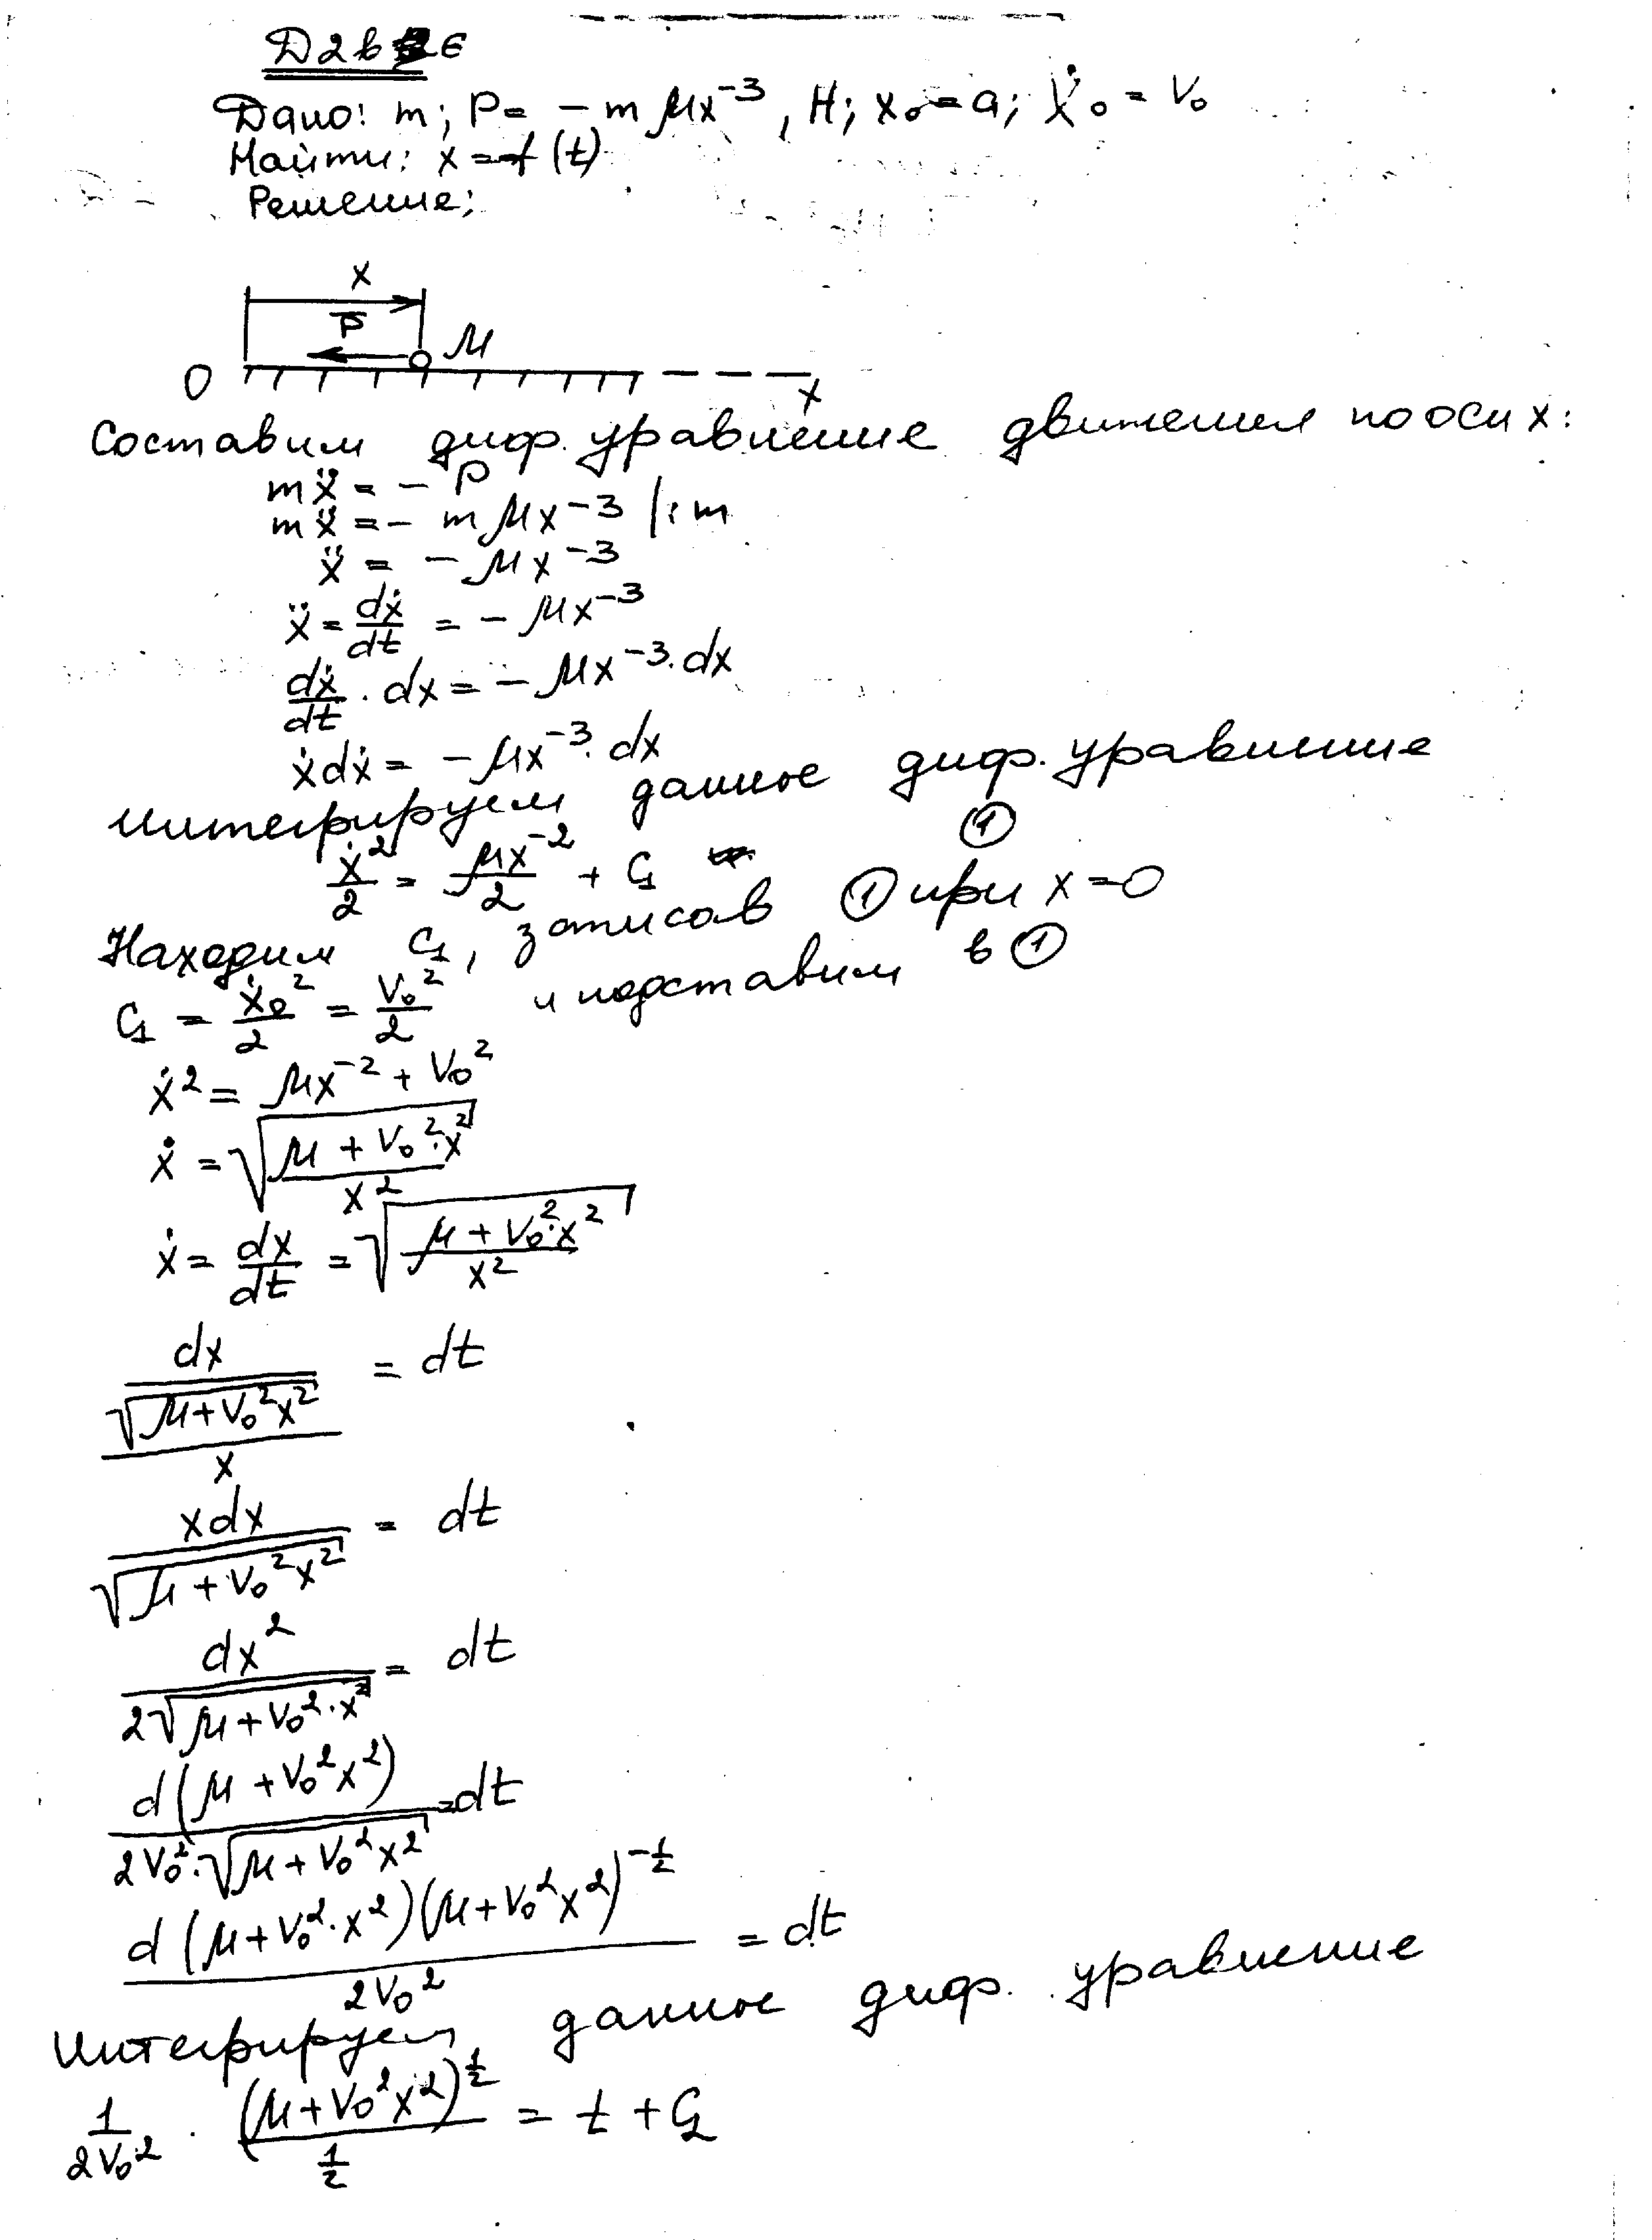 Д2в 26
Дано: m; P = - m μx⁻³, Н; x₀ = a; ẋ₀ = V₀
Найти: x = f(t)
Решение:
x
P̅
M
O
x
Составим диф. уравнение движения по оси x:
mẍ = - P
mẍ = - m μx⁻³ |: m
ẍ = - μx⁻³
ẍ = dẋ/dt = - μx⁻³
dẋ/dt · dx = - μx⁻³ · dx
ẋdẋ = - μx⁻³ · dx
Интегрируем данное диф. уравнение
ẋ²/2 = μx⁻²/2 + C₁ ①
Находим C₁, записав ① при x = 0
C₁ = ẋ₀²/2 = V₀²/2 и подставим в ①
ẋ² = μx⁻² + V₀²
ẋ = √((μ + V₀² · x²)/x²)
ẋ = dx/dt = √((μ + V₀² · x²)/x²)
dx/(√(μ + V₀²x²)/x) = dt
xdx/√(μ + V₀²x²) = dt
dx²/(2√(μ + V₀² · x²)) = dt
d(μ + V₀²x²)/(2V₀² · √(μ + V₀²x²)) = dt
d(μ + V₀² · x²)(μ + V₀²x²)^(-1/2)/(2V₀²) = dt
Интегрируем данное диф. уравнение
1/(2V₀²) · (μ + V₀²x²)^(1/2)/(1/2) = t + C₂